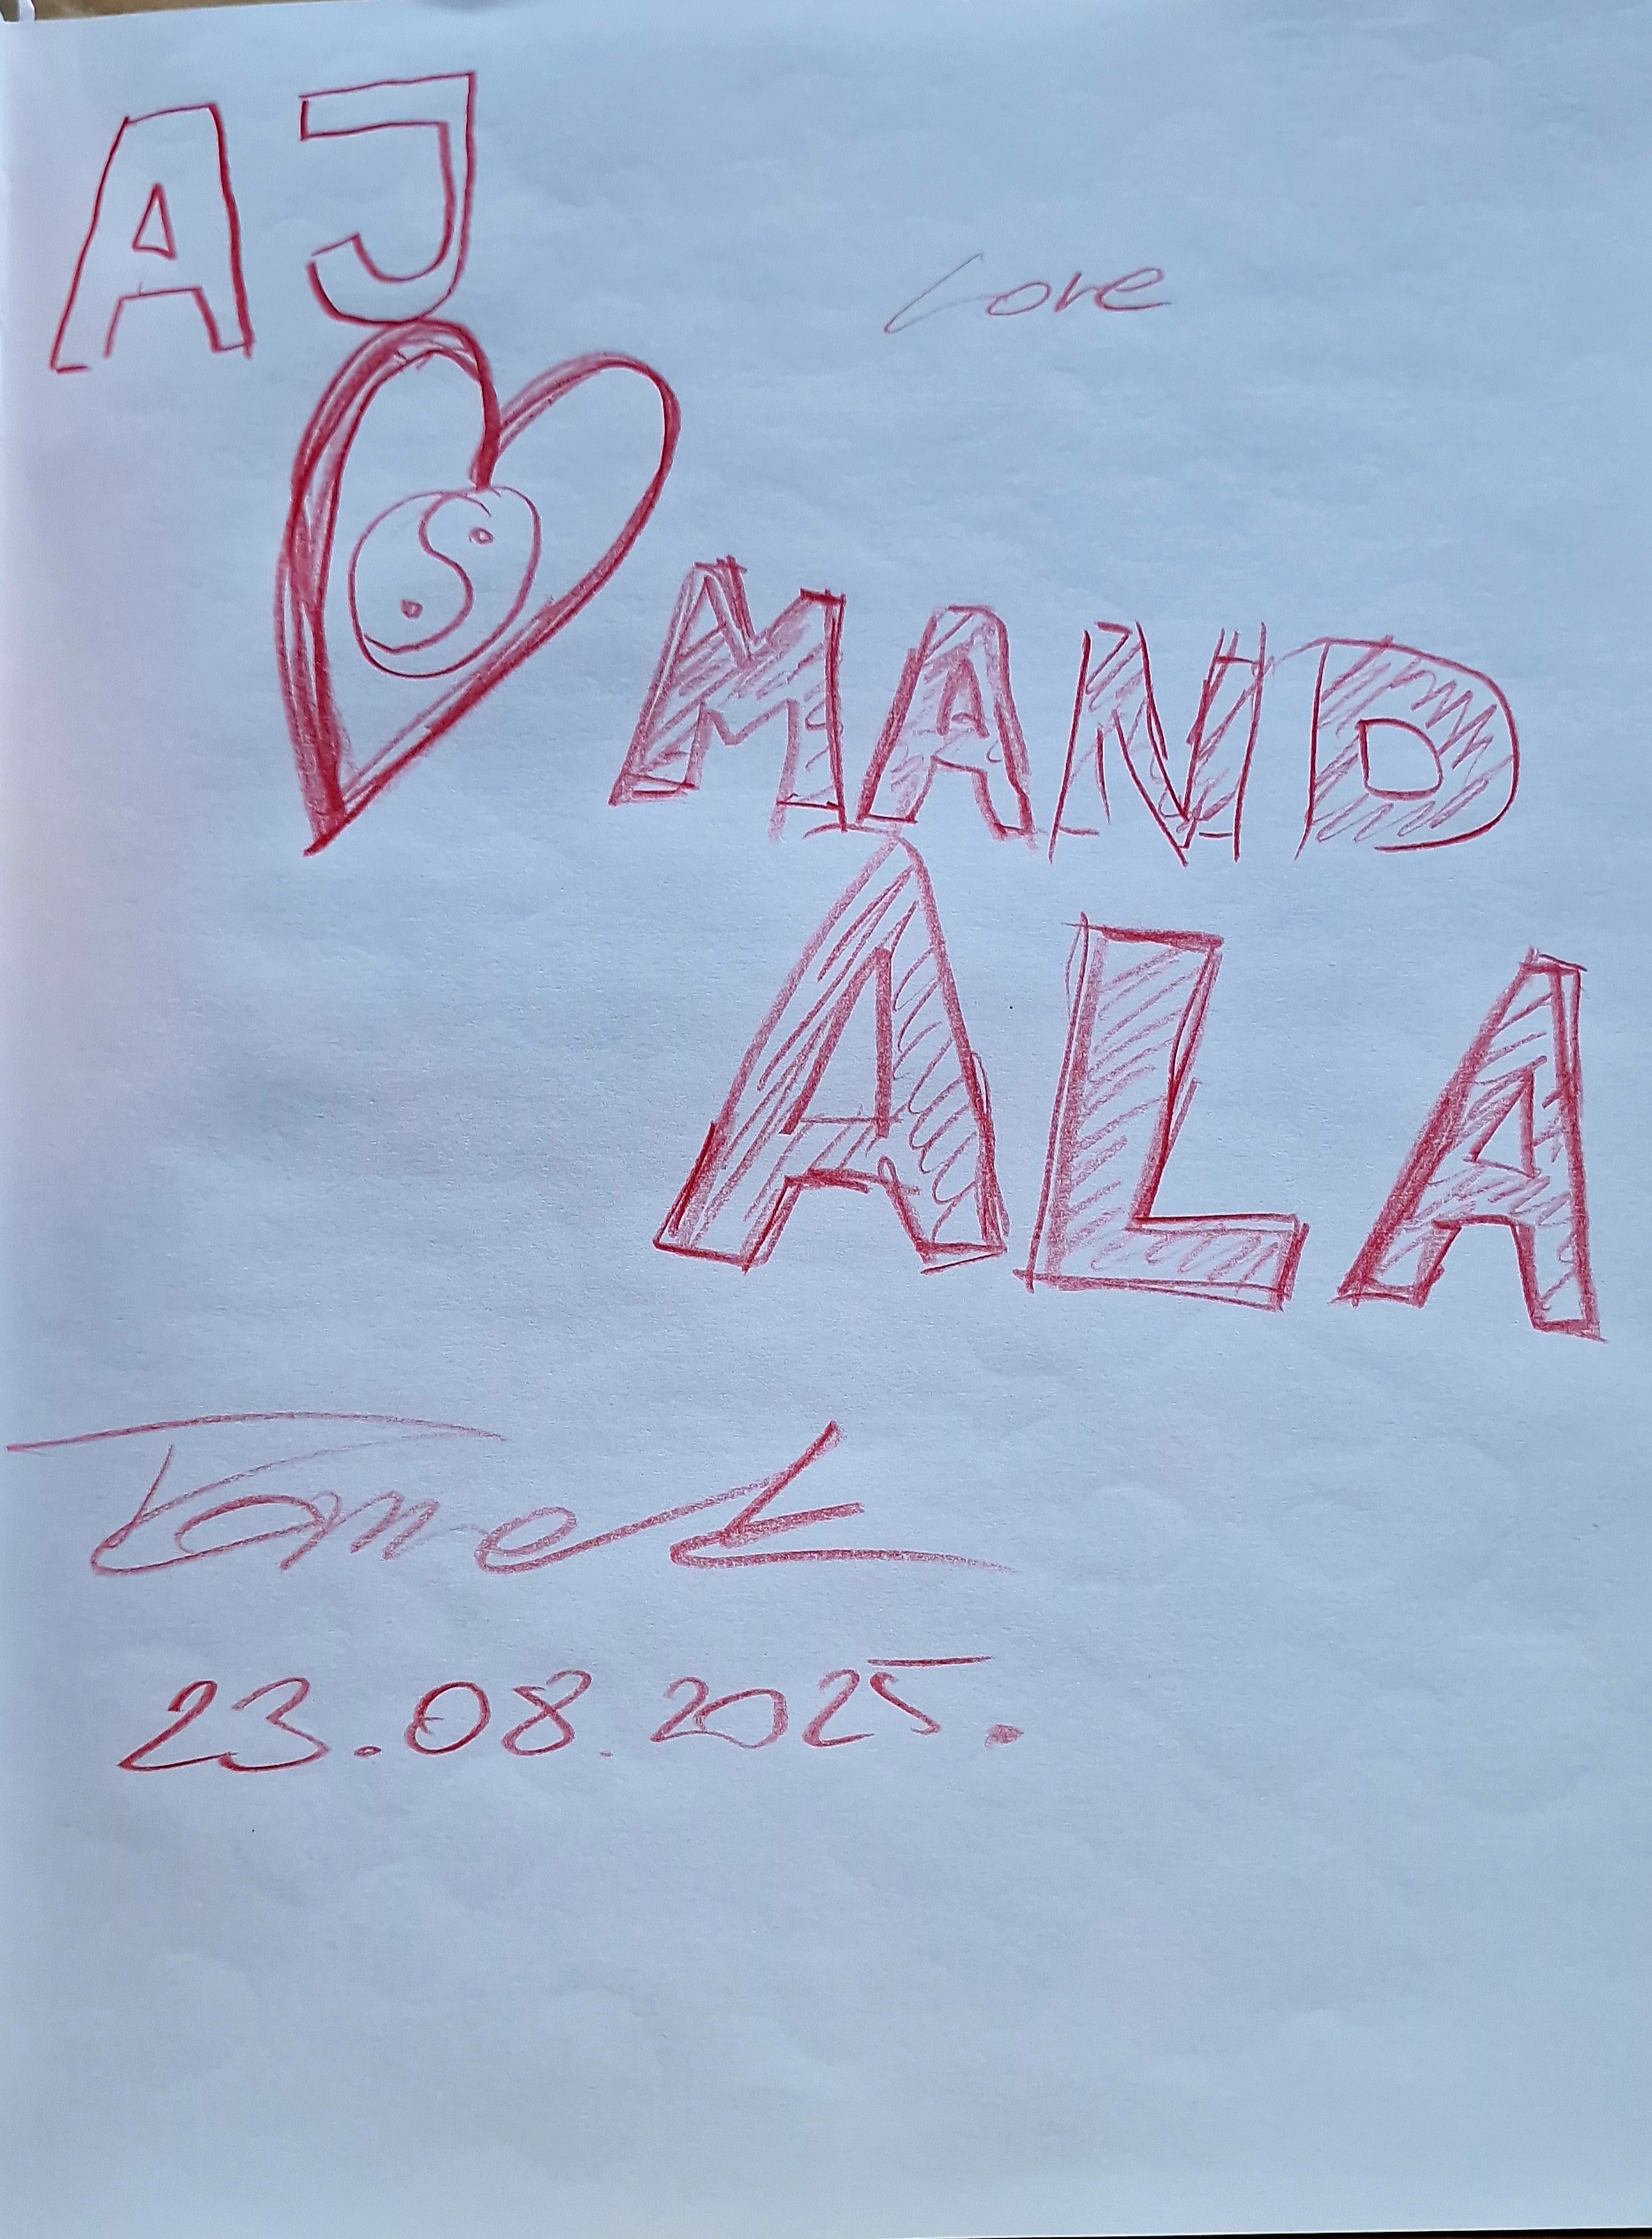 AJ
Love
MAND
ALA
Tomek
23.08.2025.